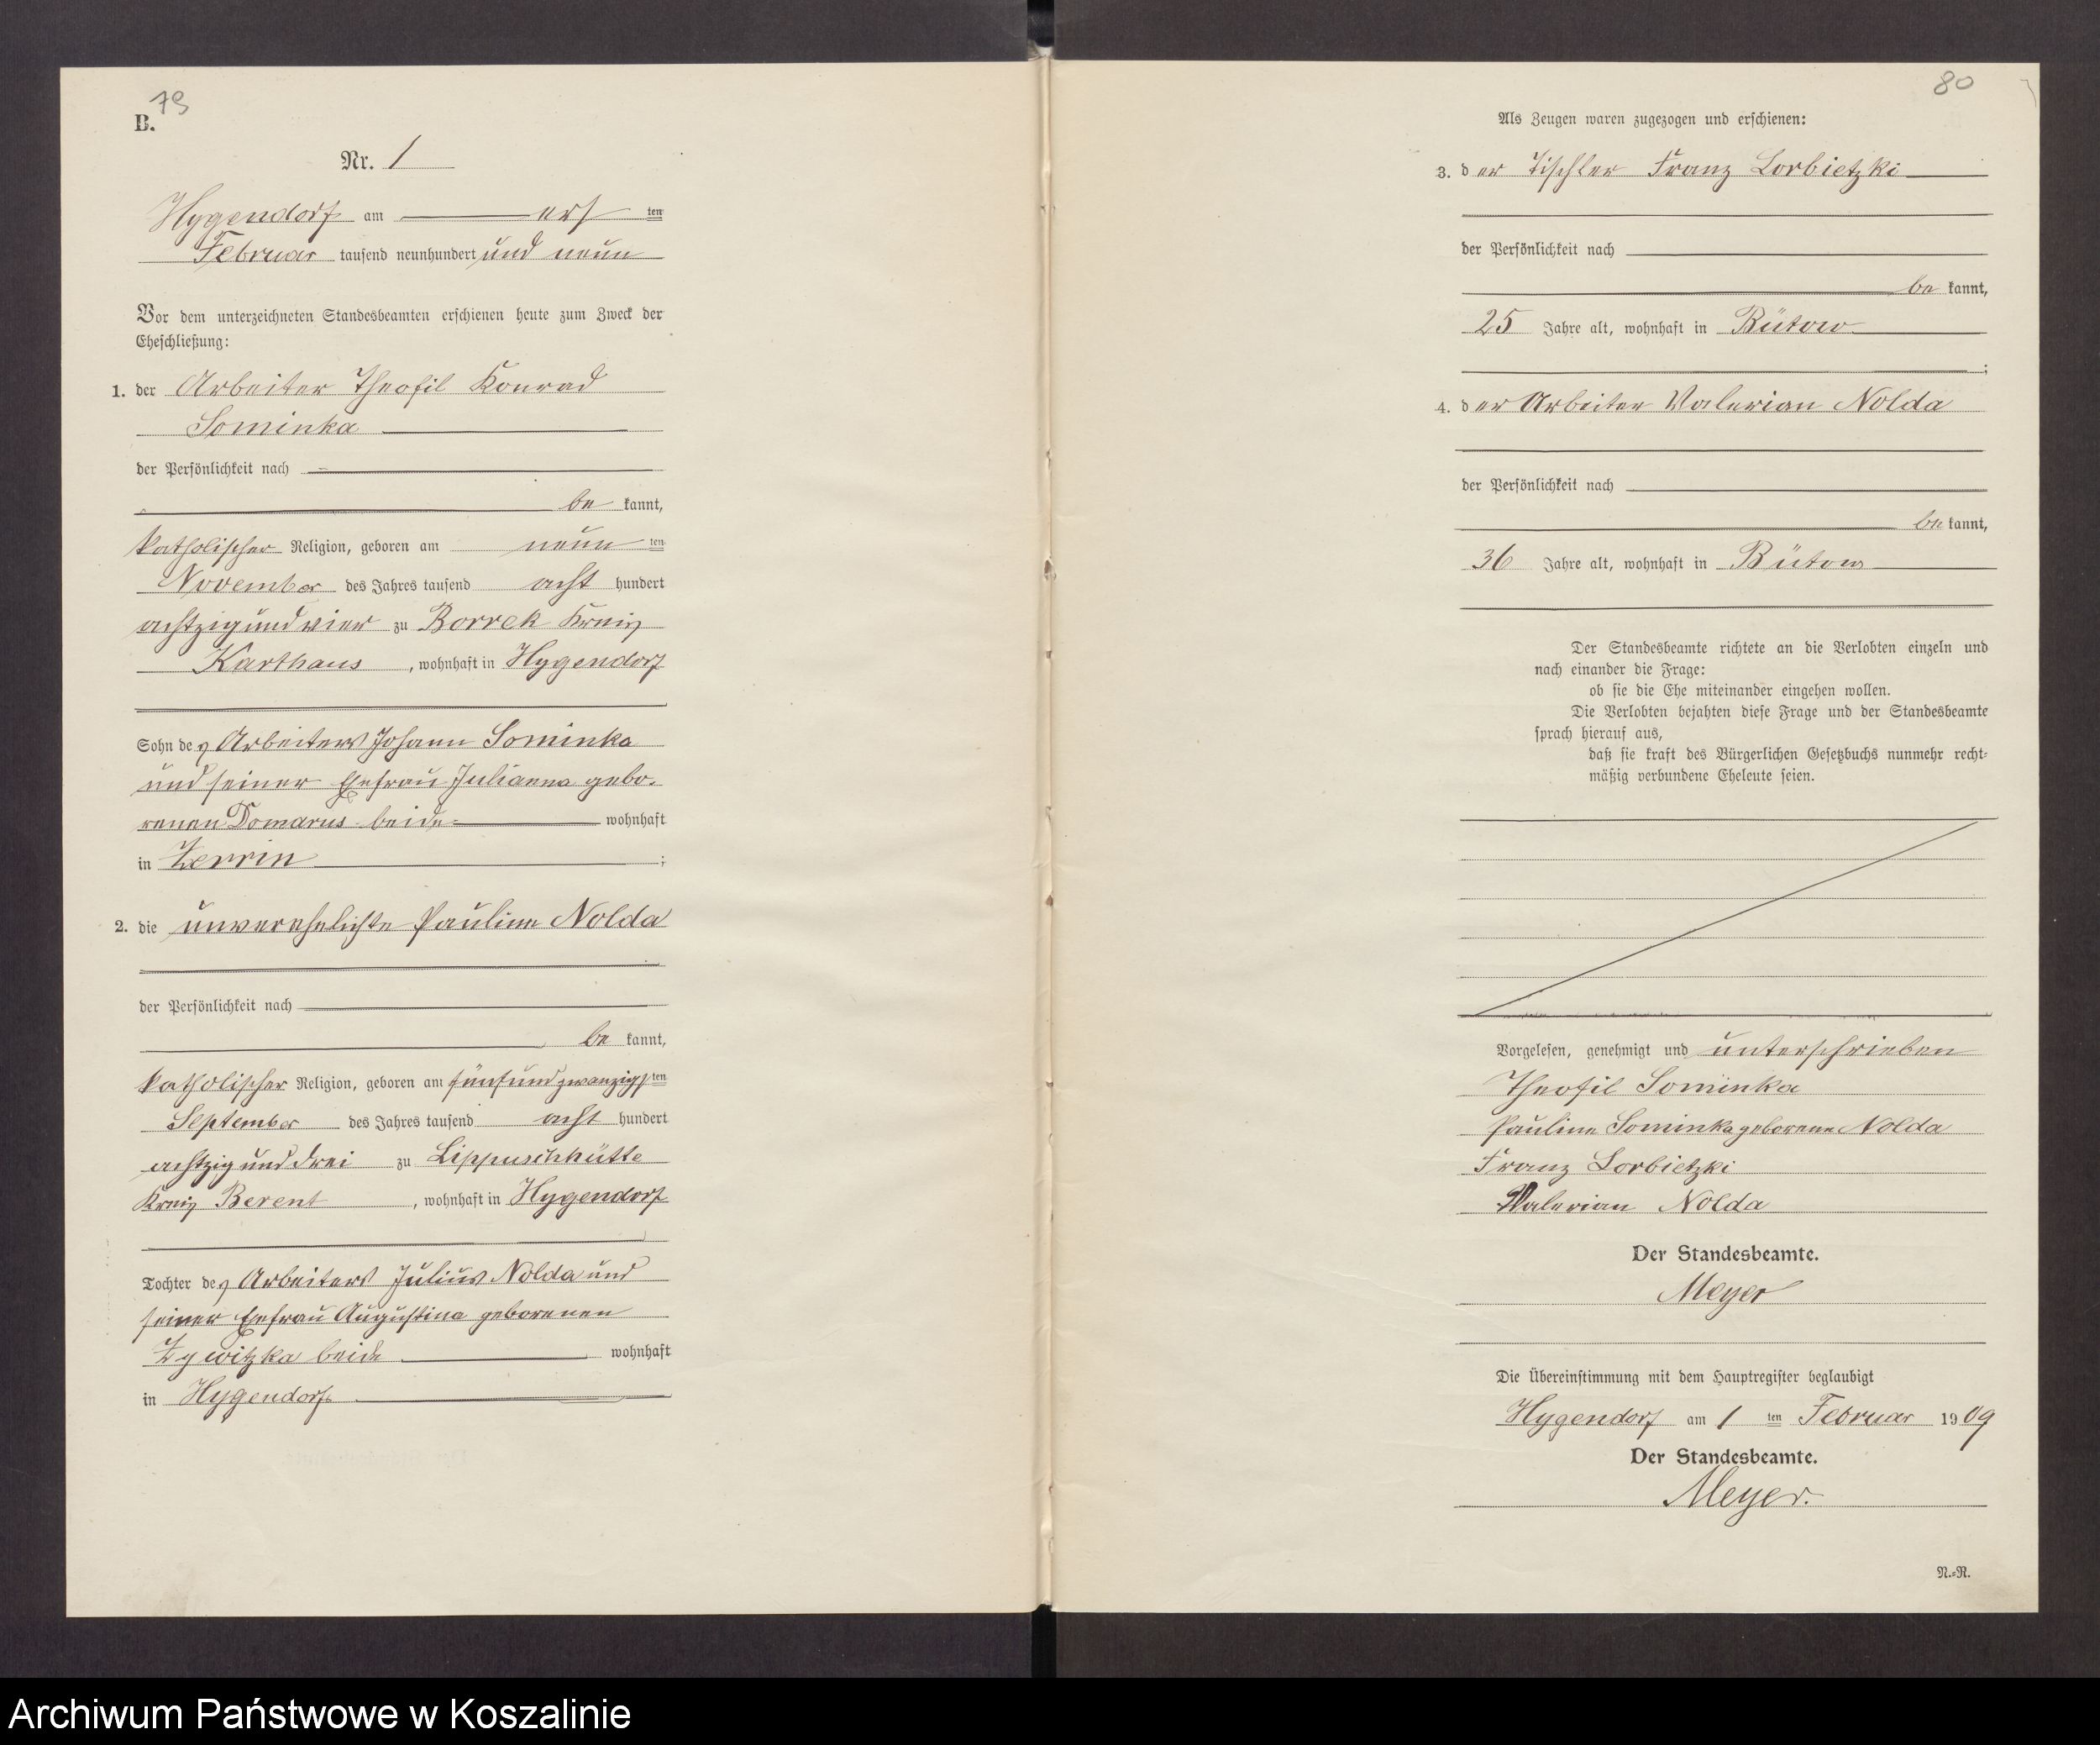 79
B.
Nr. 1
Hygendorf am erſ ten
Februar tauſend neunhundert und neun
Vor dem unterzeichneten Standesbeamten erſchienen heute zum Zweck der
Eheſchließung:
1. der Arbeiter Theofil Konrad
Sominka
der Perſönlichkeit nach
be kannt,
katholiſcher Religion, geboren am neun ten
November des Jahres tauſend acht hundert
achtzig und vier zu Borrek Kreis
Karthaus , wohnhaft in Hygendorf
Sohn des Arbeiters Johann Sominka
und ſeiner Ehefrau Julianna gebo-
renen Domarus beide wohnhaft
in Zerrin ;
2. die unverehelichte Pauline Nolda
der Perſönlichkeit nach
be kannt,
katholiſcher Religion, geboren am fünfundzwanzigſ ten
September des Jahres tauſend acht hundert
achtzig und drei zu Lippuschhütte
Kreis Berent , wohnhaft in Hygendorf
Tochter des Arbeiters Julius Nolda und
ſeiner Ehefrau Auguſtina geborenen
Zywitzka beide wohnhaft
in Hygendorf
80
Als Zeugen waren zugezogen und erſchienen:
3. der Tiſchler Franz Lorbietzki
der Perſönlichkeit nach
be kannt,
25 Jahre alt, wohnhaft in Bütow
;
4. der Arbeiter Valerian Nolda
der Perſönlichkeit nach
be kannt,
36 Jahre alt, wohnhaft in Bütow
Der Standesbeamte richtete an die Verlobten einzeln und
nach einander die Frage:
ob ſie die Ehe miteinander eingehen wollen.
Die Verlobten bejahten dieſe Frage und der Standesbeamte
ſprach hierauf aus,
daß ſie kraft des Bürgerlichen Geſetzbuchs nunmehr recht-
mäßig verbundene Eheleute ſeien.
Vorgeleſen, genehmigt und unterſchrieben
Theofil Sominka
Pauline Sominka geborene Nolda
Franz Lorbietzki
Valerian Nolda
Der Standesbeamte.
Meyer
Die Übereinſtimmung mit dem Hauptregiſter beglaubigt
Hygendorf am 1 ten Februar 1909
Der Standesbeamte.
Meyer.
N.-R.
Archiwum Państwowe w Koszalinie